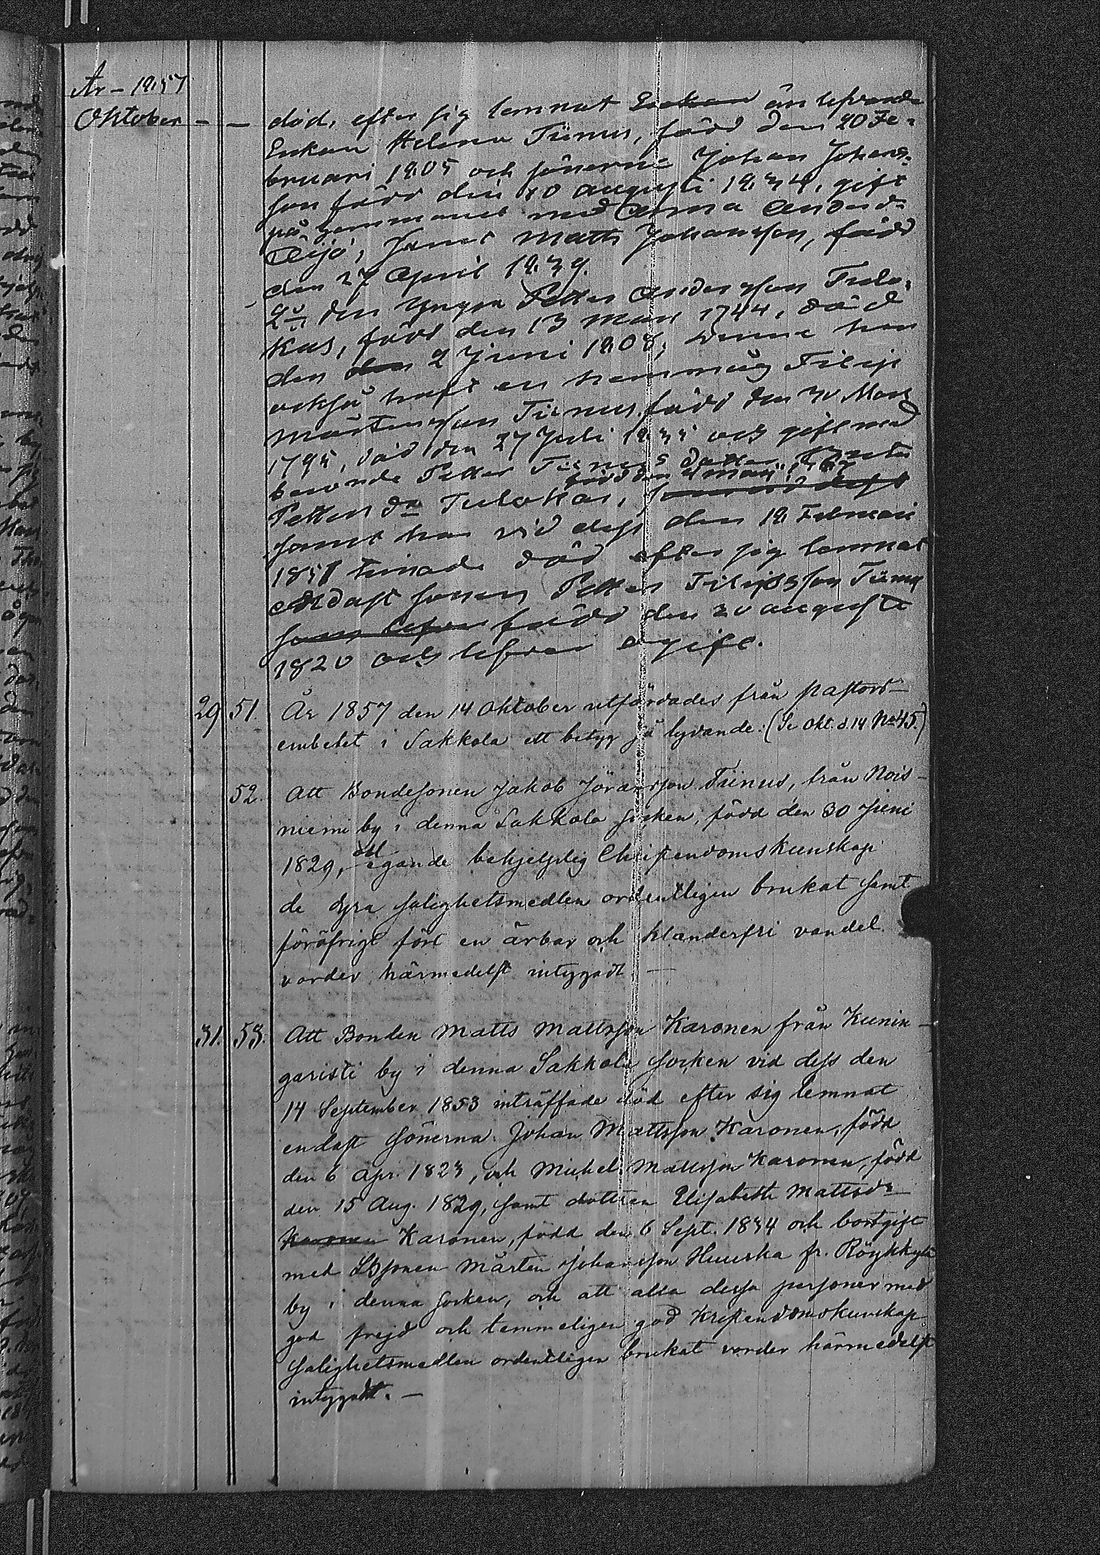 År - 1857
Oktober - - död, efter sig lemnat Enkan än lefvande
Enkan Helena Tiinus, född den 20 Fe-
bruari 1805 och sönerna Johan Johans-
son född den 10 augusti 1834, gift
på hemmanet med Anna Anders-
Äijö; samt Matts Johansson, född
den 27 April 1839.
2o den yngre Petter Andersson Tulo-
kas, född den 13 Mars 1744, död
den den 2 Juni 1808; Denne har
också haft en hemmåg Filip
Mårtensson Tiinus född den 30 Mars
1795, död den 27 Juli 1835 och gift med
berörde Petter Dotter
född den
Petters dr Tulokas,
samt har vid dess den 18 Februari
1851 timade död efter sig lemnat
endast sonen Petter Filipsson Tiinus
född den 20 augusti
1820 och lefver ogift.
29. 51. År 1857 den 14 Oktober utfärdades från pastors-
embetet i Sakkola ett betyg så lydande. (Se Okt. d. 14 No 45.)
52. Att Bondesonen Jakob Göransson Tiinus, från Nois-
niemi by i denna Sakkola socken, född den 30 Juni
1829, egande behjelplig Christendomskunskap
de dyra salighetsmedlen ordentligen brukat samt
föröfrigt fört en ärbar och klanderfri vandel
varder härmedelst intygadt. -
31. 53. Att Bonden Matts Mattsson Karonen från Kunin-
garisti by i denna Sakkola socken vid dess den
14 September 1853 inträffade död efter sig lemnat
endast sönerna Johan Mattsson Karonen, född
den 6 Apr. 1823, och Michel Mattsson Karonen, född
den 15 Aug. 1829, samt dottren Elisabeth Mattsdr
Karonen, född den 6 Sept. 1834 och bortgift
med Bsonen Mårten Johansson Huuska fr. Röykkylä
by i denna socken, och att alla dessa personer med
god frejd och temmeligen god Kristendomskunskap
salighetsmedlen ordentligen brukat varder härmedelst
intygadt. -